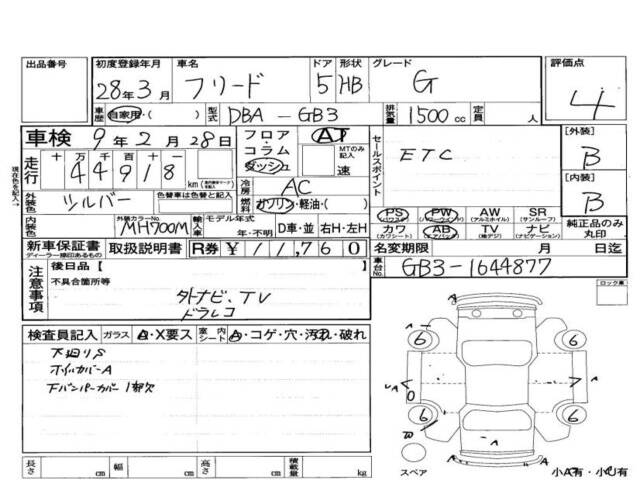 出品番号 初度登録年月 車名 ドア 形状 グレード 評価点
28年3月 フリード 5 HB G 4
車歴 自家用・( ) 型式 DBA-GB3 排気量 1500cc 定員 人
車検 9年2月28日 フロア・コラム ダッシュ AT MTのみ記入 速 セールスポイント ETC [外装] B
走行 十万千百十一 44918 km
冷房 AC [内装] B
外装色 シルバー 色替車は色替と記入 燃料 ガソリン・軽油・( )
PS PW AW SR 純正品のみ丸印
(パワーウィンドウ) (アルミホイル) (サンルーフ)
内装色 外装カラーNo. MH700M 輸入車 モデル年式 年・不明 D車・並 右H・左H カワ AB TV ナビ
(カワシート) (エアバック) (ナビゲーション)
新車保証書 取扱説明書 R券 ¥11,760 名変期限 月 日迄
ディーラー様印あるもの 車台No. GB3-1644877
現在色を記入
注意事項 後日品【 】 ロック車
不具合箇所等
外ナビ、TV
ドラレコ
検査員記入 ガラス A・X要ス 室内シート A・コゲ・穴・汚れ・破れ
下廻りS
ホイルカバーA
下バンパーカバー1部欠
6 6
A A A
0
6 6
W A
スペア A 小A有・小U有
長さ cm 幅 cm 高さ cm 積載量 kg